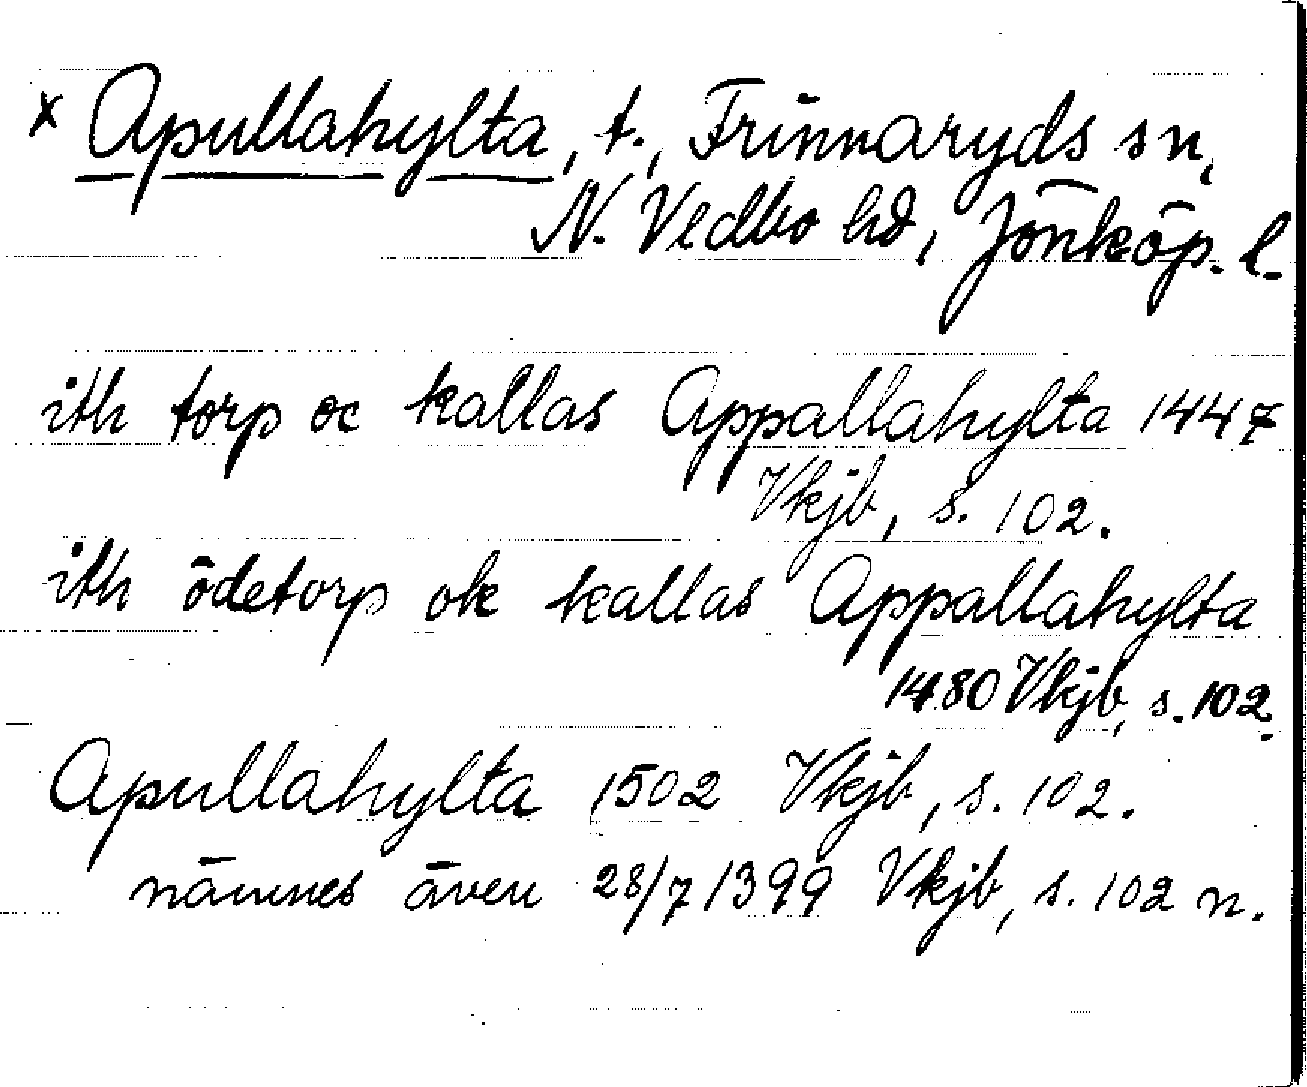 x Apullahylta, t., Frinnaryds sn,
N. Vedbo hd, Jönköp. l.
ith torp oc kallas Appallahylta 1447
Vkjb, s. 102.
ith ödetorp ok kallas Appallahylta
1480 Vkjb, s. 102.
Apullahylta 1502 Vkjb, s. 102.
nämnes även 28/7 1399 Vkjb, s. 102 n.